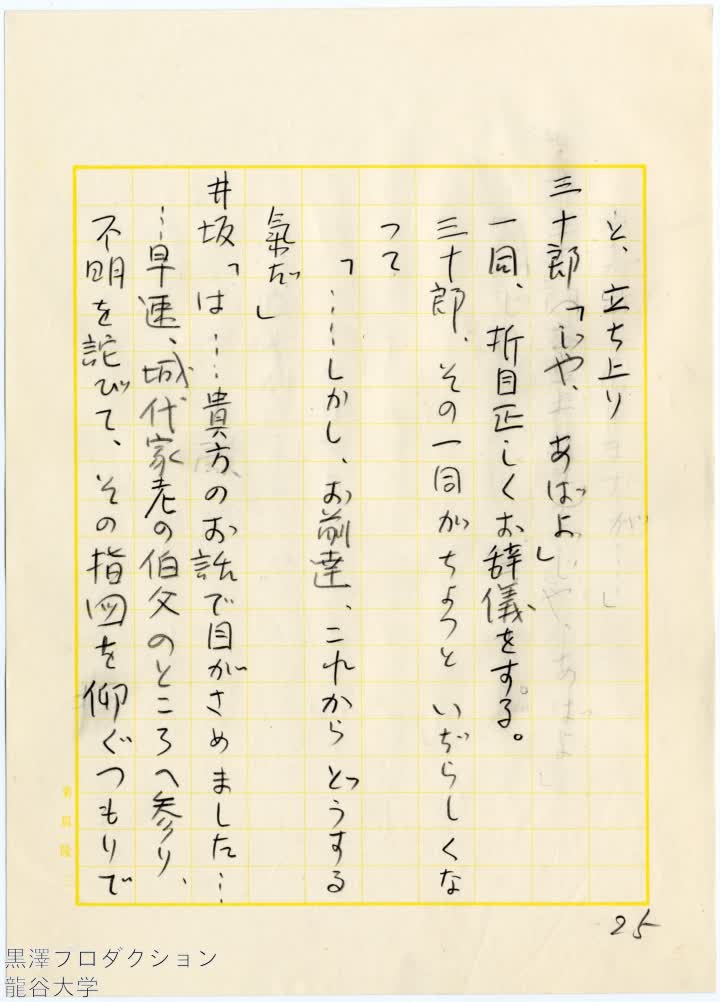 と、立ち上り
三十郎「じや、あばよ」
一同、折目正しくお辞儀をする。
三十郎、その一同がちよつといぢらしくな
つて
「……しかし、お前達、これからどうする
氣だ」
井坂「は……貴方のお話で目がさめました…
…早速、城代家老の伯父のところへ参り、
不明を詫びて、その指図を仰ぐつもりで
25
黒澤プロダクション
龍谷大学